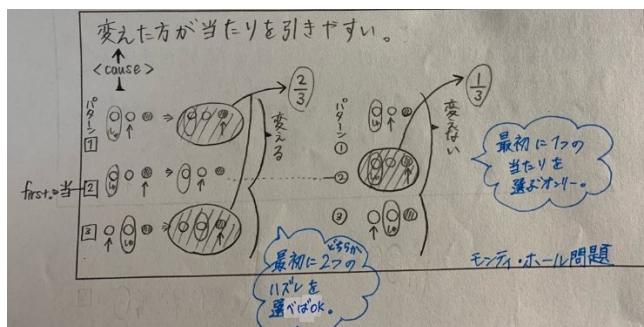 変えた方が当たりを引きやすい。
<cause>
2/3
1/3
パターン
1
2
3
first.=当
変える
パターン
①
②
③
変えない
最初に1つの
当たりを
選ぶオンリー。
どちらか
最初に2つの
ハズレを
選べばOK。
モンティ・ホール問題